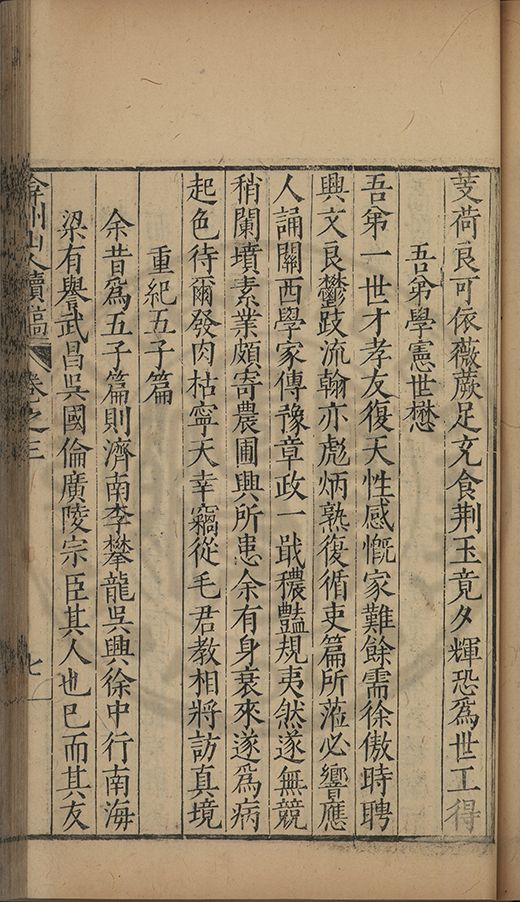 芰荷良可依薇蕨足充食荆玉竟夕輝恐爲世工得
吾弟學憲世懋
吾弟一世才孝友復天性感慨家難餘需徐傲時聘
興文良鬱跂流翰亦彪炳熟復循吏篇所蒞必響應
人誦關西學家傳豫章政一戢穠豔規夷然遂無競
稍闌墳素業頗寄農圃興所患余有身衰來遂爲病
起色待爾發肉枯寧天幸竊從毛君教相將訪真境
重紀五子篇
余昔爲五子篇則濟南李攀龍吳興徐中行南海
梁有譽武昌吳國倫廣陵宗臣其人也已而其友
弇州山人續稿 卷之三 七